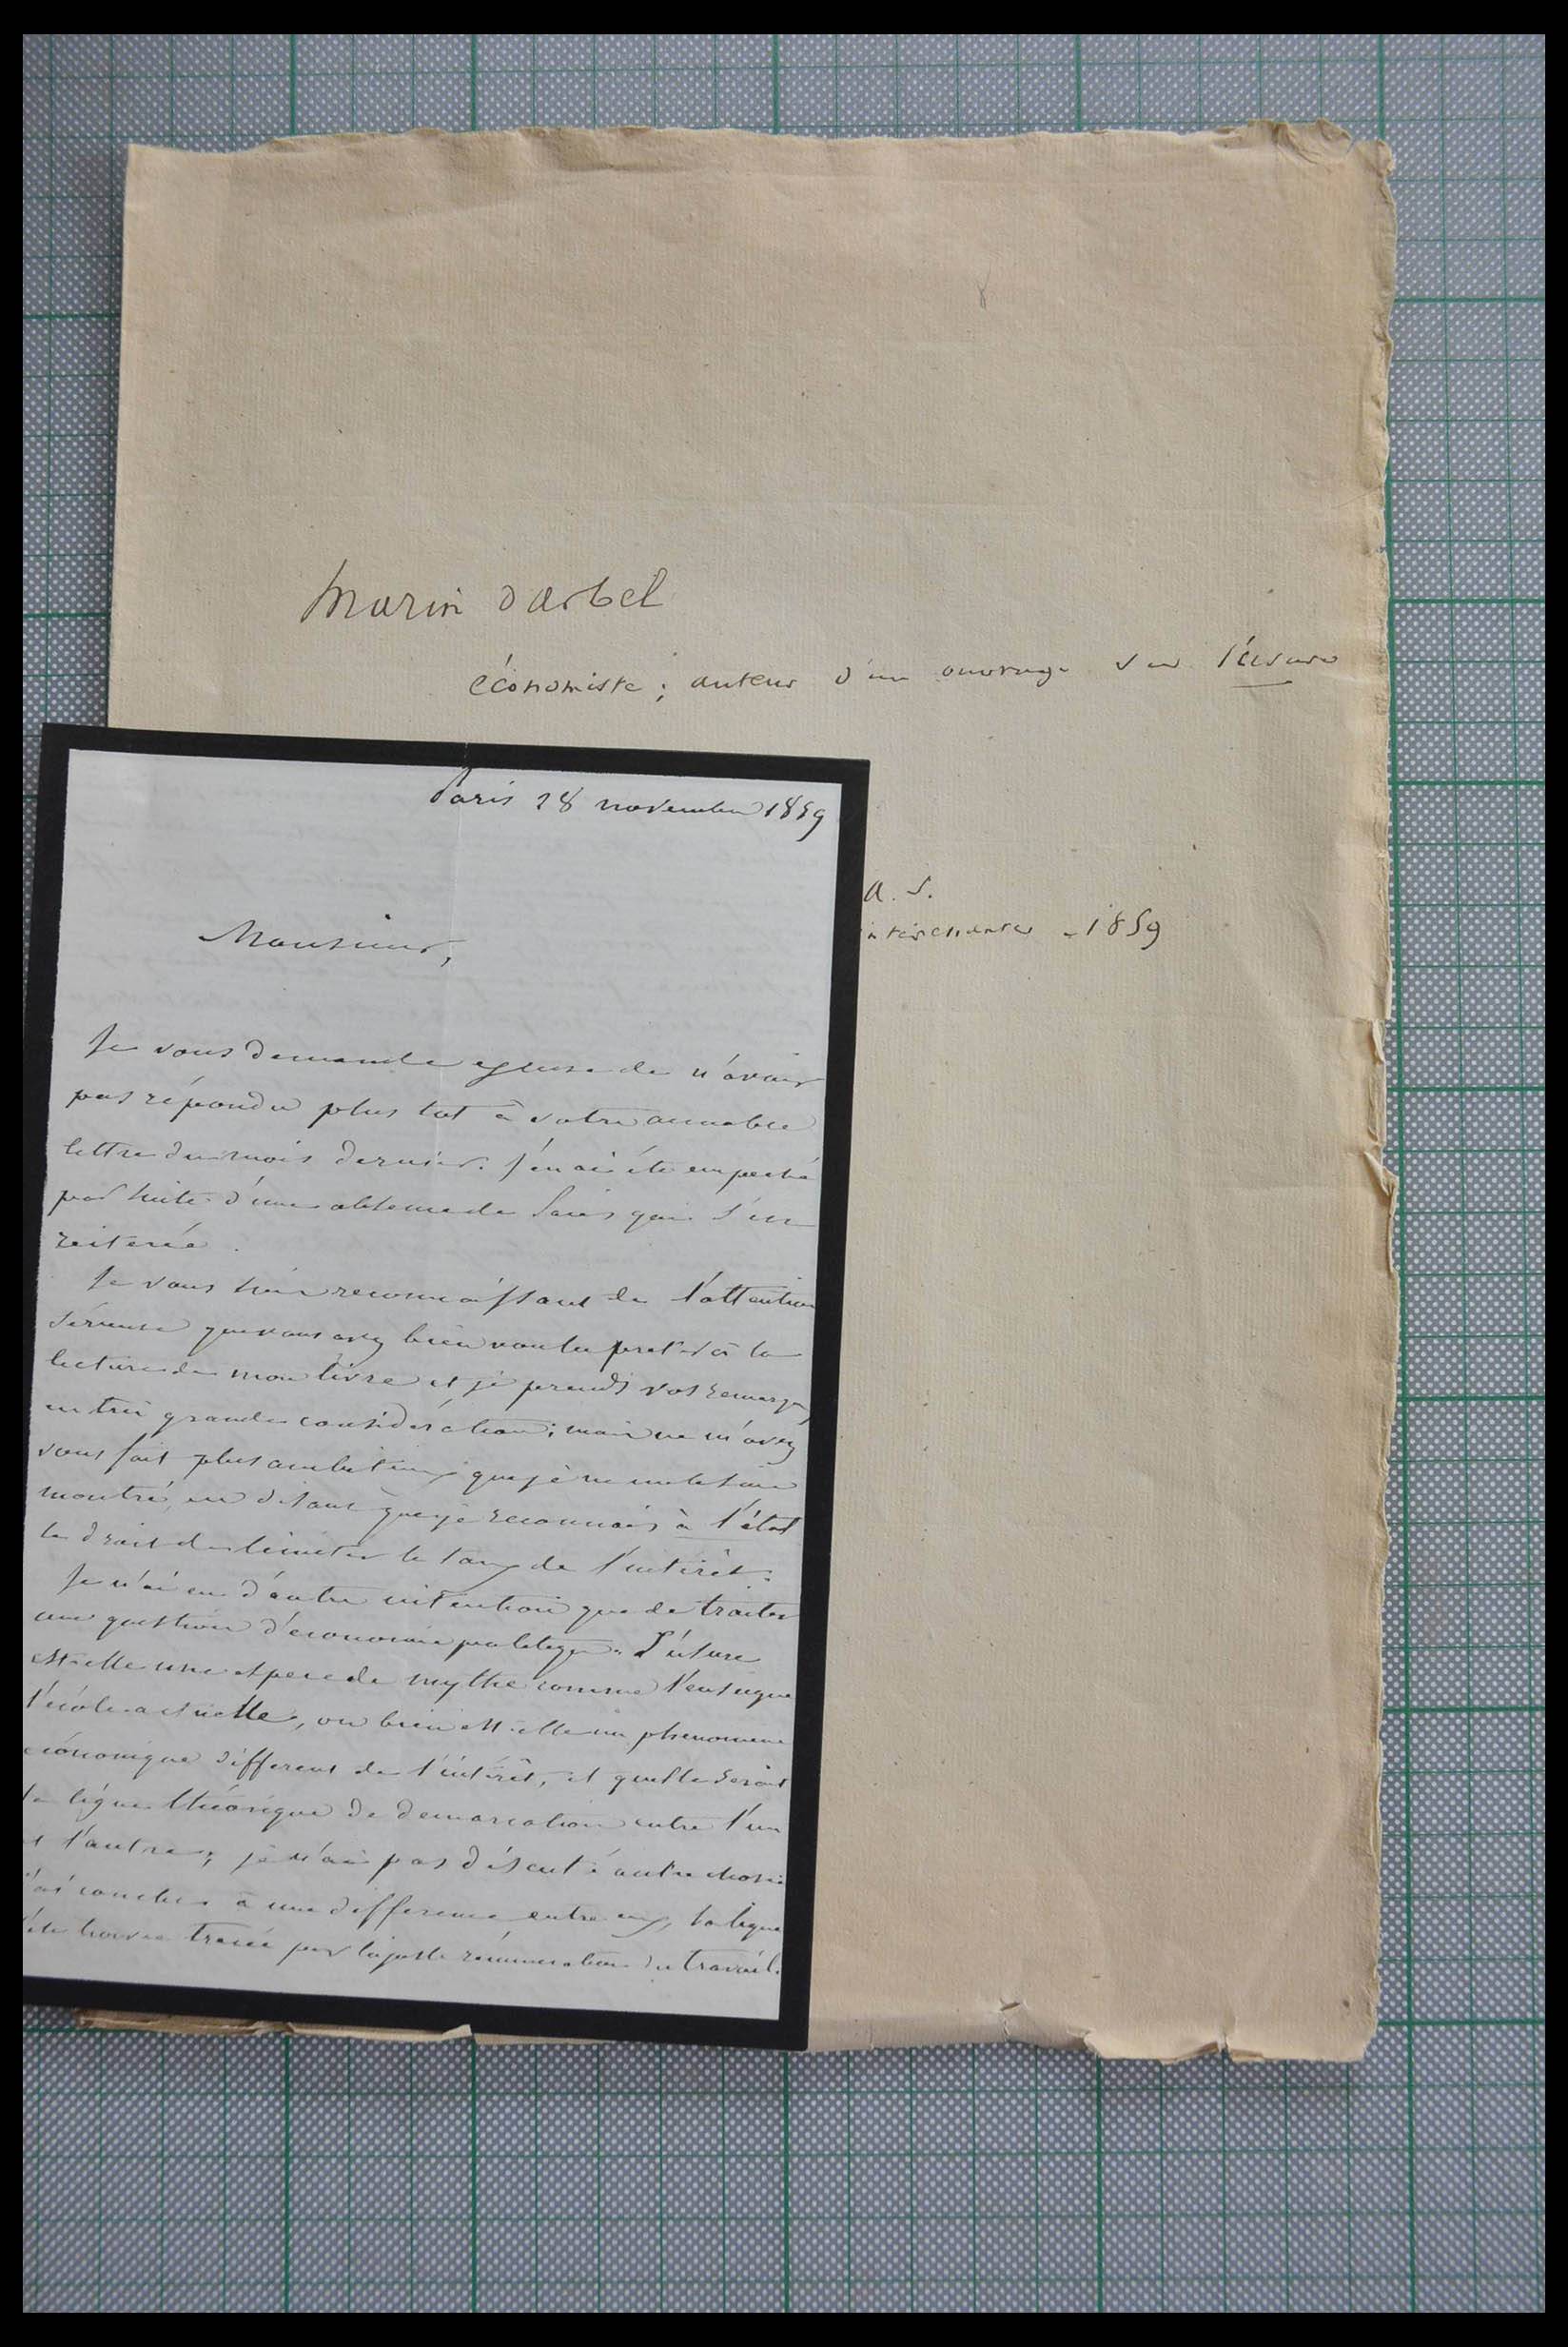 Marin Darbel
économiste ; auteur d'un ouvrage sur l'usure
a. s.
intéressante - 1859
Paris 28 novembre 1859
Monsieur,
Je vous demande excuse de n'avoir
pas répondu plus tot à votre aimable
lettre du mois dernier. J'en ai été empeché
par suite d'une absence de Paris qui s'est
réiterée.
Je vous suis reconnaissant de l'attention
sérieuse que vous avez bien voulu preter à la
lecture de mon livre et je prends vos remarq
en très grande considération ; mais ne m'avez
vous fait plus ambitieux que je ne me suis
montré, en disant que je reconnais à l'état
le droit de limiter le taux de l'intérêt.
Je n'ai eu d'autre intention que de traiter
une question d'économie politique. L'usure
est-elle une espece de mythe comme l'enseigne
l'école actuelle, ou bien est-elle un phenomene
économique different de l'intérêt, et quelle serait
la ligne théorique de demarcation entre l'un
et l'autre ; je n'ai pas discuté autre chose
j'ai conclu à une difference entre eux, la ligne
été trouvée tracée par la juste rémuneration du travail.